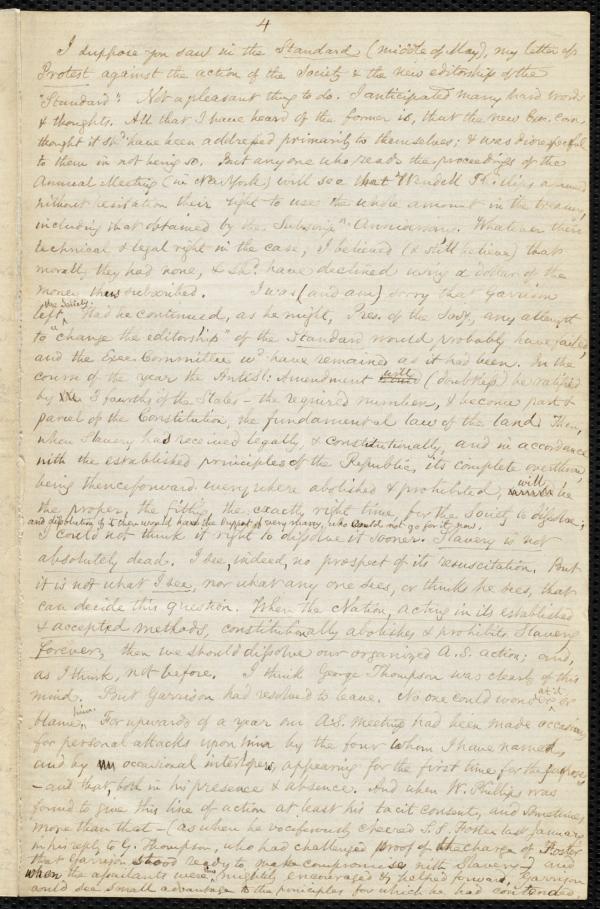 4
I suppose you saw in the Standard (middle of May), my letter of
Protest against the action of the Society & the new editorship of the
"Standard". Not a pleasant thing to do. I anticipated many hard words
& thoughts. All that I have heard of the former is, that the new Exec. Com.
thought it shd. have been addressed primarily to themselves; & was disrespectful
to them in not being so. But any one who reads the proceedings of the
Annual Meeting (in New York) will see that Wendell Phillips assumed
without hesitation their right to use the whole amount in the treasury,
including that obtained by the Subscripn. Anniversary. Whatever their
technical & legal right in the case, I believed (& still believe) that
morally they had none, & shd. have declined using a dollar of the
money thus subscribed. I was (and am) sorry that Garrison
left the Society. Had he continued, as he might, Pres. of the Socy., any attempt
to "change the editorship" of the Standard would probably have failed,
and the Exec. Committee wd. have remained as it had been. In the
course of the year the Anti Sl: Amendment will (doubtless) be ratified
by 3 fourths of the States – the required number, & become part &
parcel of the Constitution, the fundamental law of the land. Then,
when Slavery has received legally, & constitutionally, and in accordance
with the established principles of the Republic, its complete overthrow,
being thenceforward every where abolished & prohibited, will be
the proper, the fitting, the exactly right time, for the society to dissolve;
and dissolution of it then would have the support of very many, who could not go for it now.
I could not think it right to dissolve it sooner. Slavery is not
absolutely dead. I see, indeed, no prospect of its resuscitation. But
it is not what I see, nor what any one sees, or thinks he sees, that
can decide this question. When the Nation, acting in its established
& accepted methods, constitutionally abolishes & prohibits Slavery
forever, then we should dissolve our organized A.S. action; and,
as I think, not before. I think George Thompson was clearly of this
mind. But Garrison had resolved to leave. No one could wonder at it or
blame him. For upwards of a year our A.S. meetings had been made occasions
for personal attacks upon him by the four whom I have named,
and by occasional interlopers, appearing for the first time for the purpose,
– and that, both in his presence & absence. And when W. Phillips was
found to give this line of action at least his tacit consent, and sometimes
more than that – (as when he vociferously cheered S.S. Foster last January
in his reply to G. Thompson, who had challenged proof of the charge of Foster
that Garrison stood ready to make compromise with Slavery) and
when the assailants were mightily encouraged & helped forward, Garrison
could see small advantage to the principles for which he had contended,